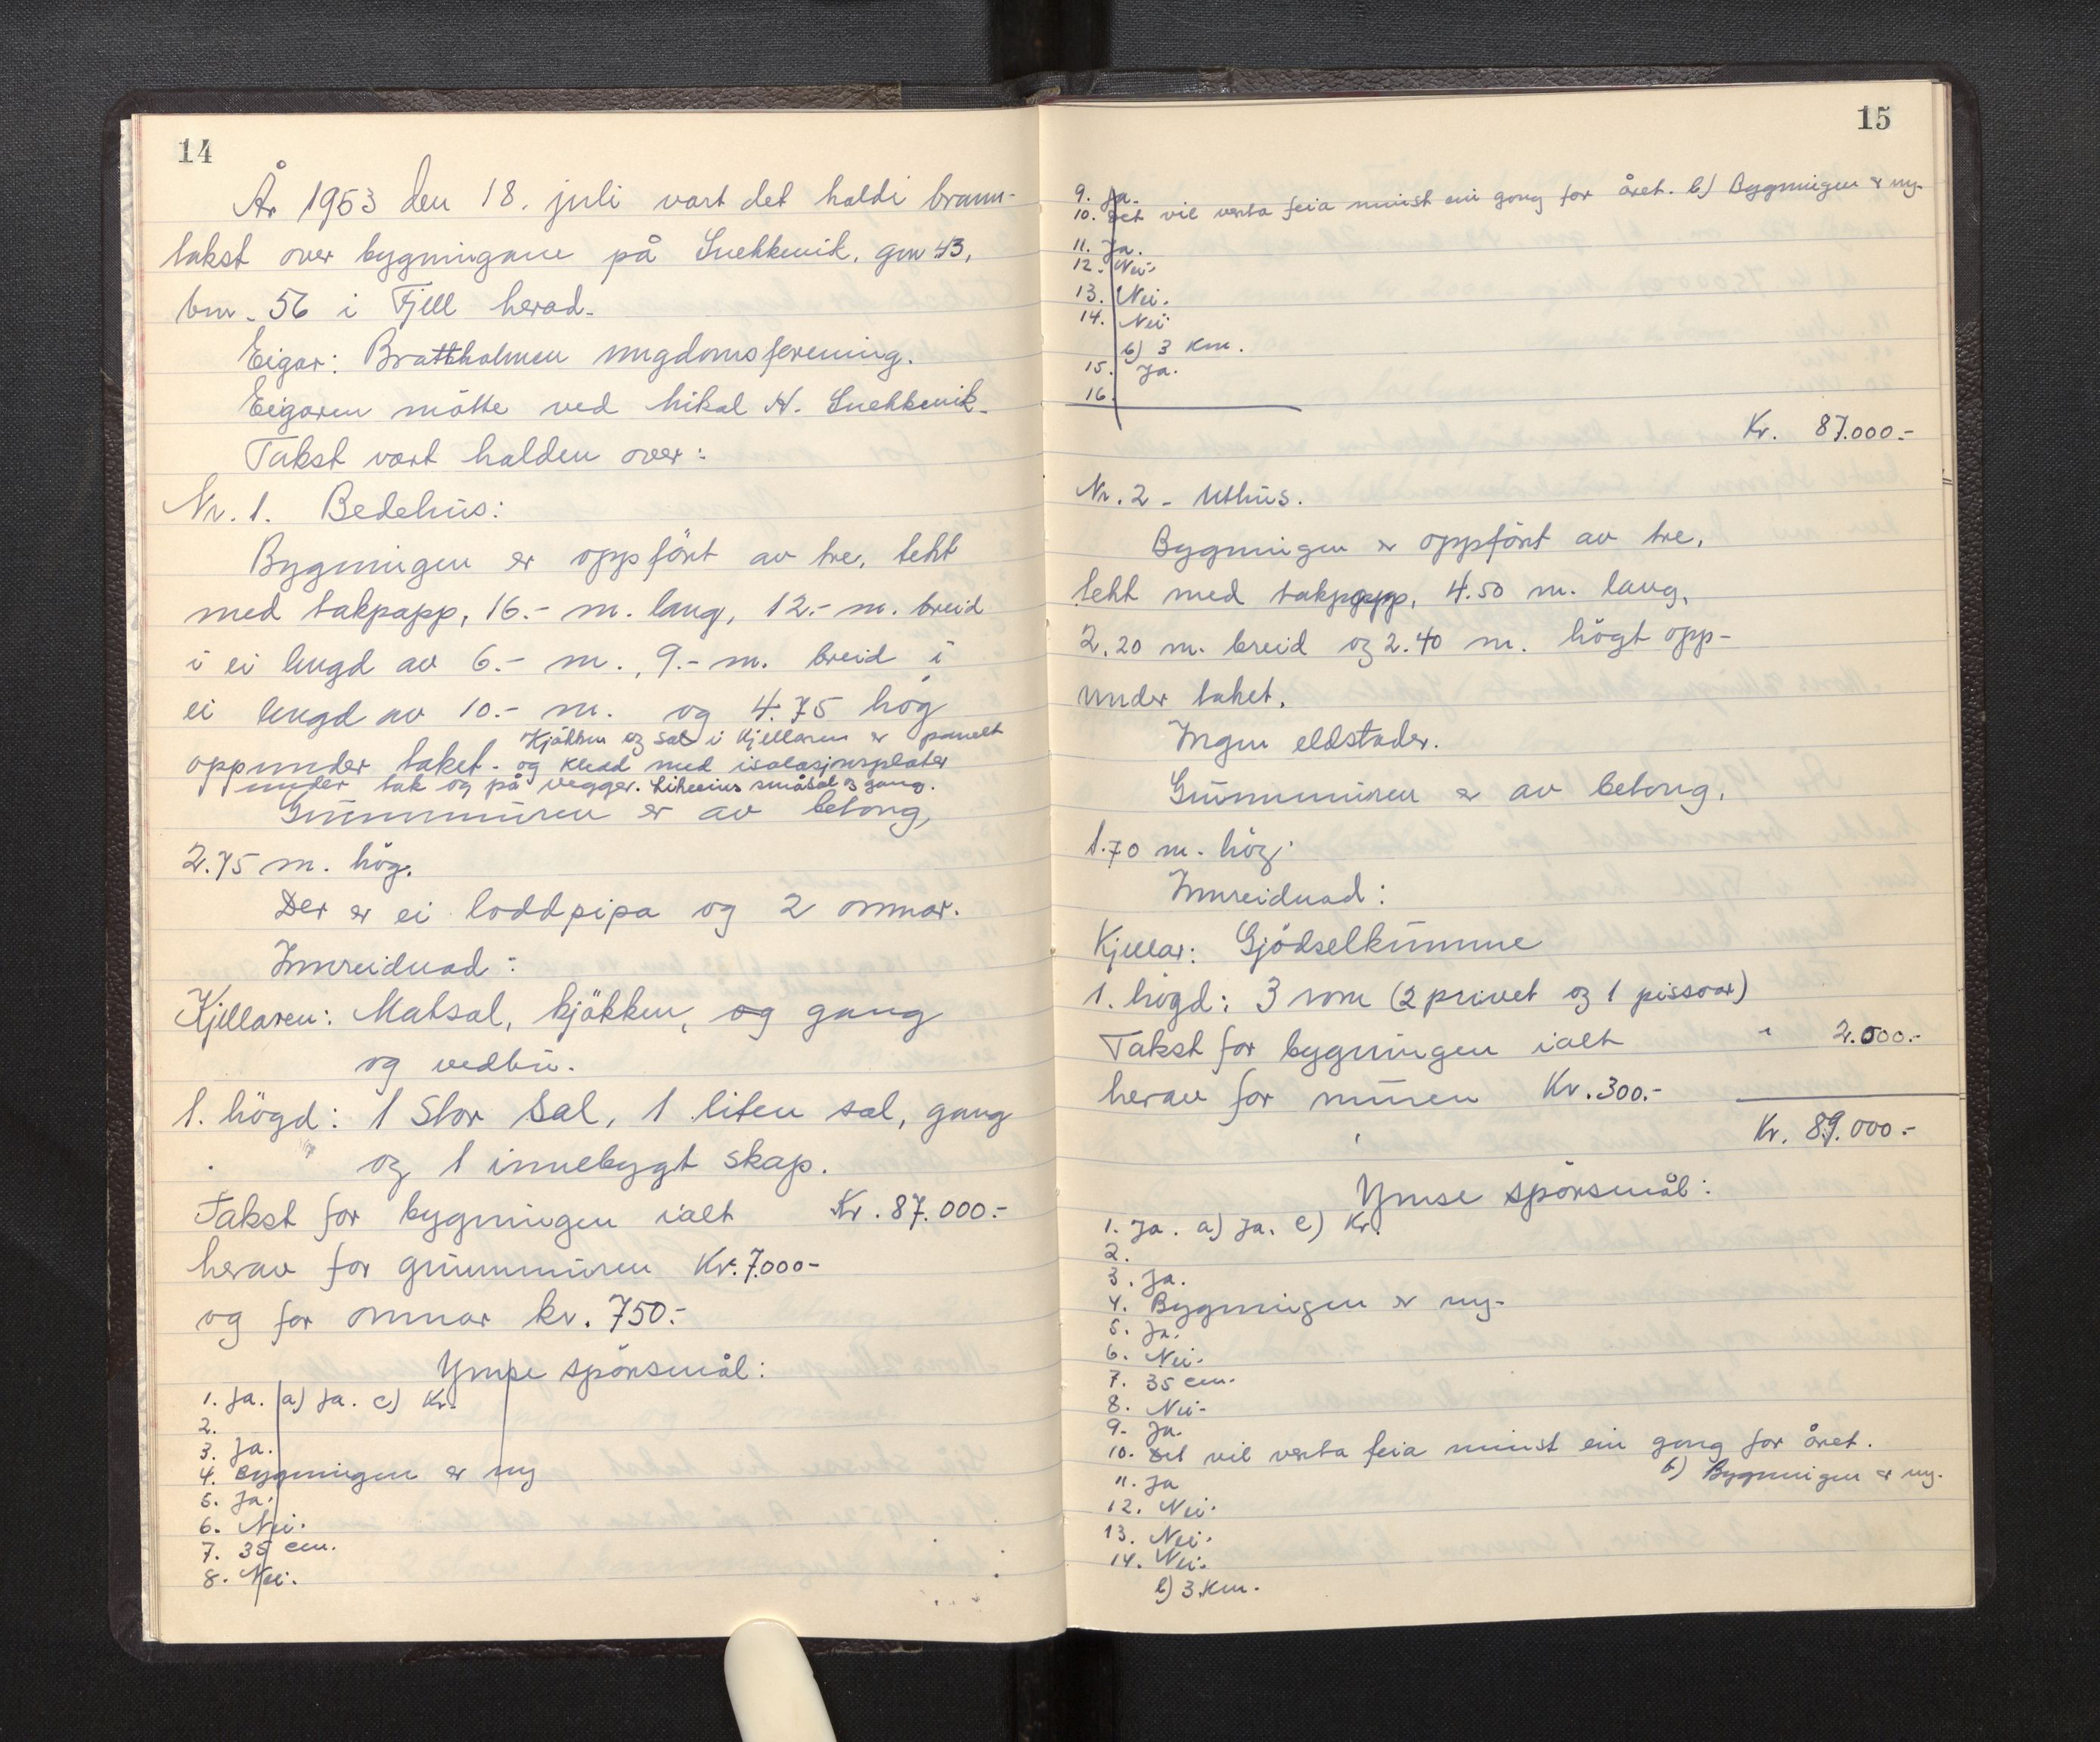 14
År 1953 den 18. juli vart det haldi brann-
takst over bygningane på Snekkevik, gnr 43,
bnr. 56 i Fjell herad.
Eigar: Brattholmen ungdomsforening.
Eigaren møtte ved Mikal N. Snekkevik.
Takst vart halden over:
Nr. 1. Bedehus:
Bygningen er oppført av tre, tekt
med takpapp, 16.- m. lang, 12.- m. breid
i ei lengd av 6.- m., 9.- m. breid i
ei lengd av 10.- m. og 4.75 høg
Kjøkken og sal i kjellaren er panelt
oppunder taket. og kledd med isolasjonsplater
under tak og på vegger. Likeeins småsal og gang.
Grunnmuren er av betong,
2.75 m. høg.
Der er ei loddpipa og 2 omnar.
Innreidnad:
Kjellaren: Matsal, kjøkken, og gang
og vedbu.
1. høgd: 1 Stor Sal, 1 liten sal, gang
og 1 innebygt skap.
Takst for bygningen ialt Kr. 87.000.-
herav for grunnmuren Kr. 7.000-
og for omnar kr. 750.-
Ymse spørsmål:
1. Ja. a) Ja. c) Kr.
2.
3. Ja.
4. Bygningen er ny
5. Ja.
6. Nei.
7. 35 cm.
8. Nei.
15
9. Ja.
10. Det vil verta feia minst ein gong for året. b) Bygningen er ny.
11. Ja.
12. Nei.
13. Nei.
14. Nei
b) 3 Km.
15. Ja.
16.
Kr. 87.000.-
Nr. 2 - Uthus.
Bygningen er oppført av tre,
tekt med takpapp, 4.50 m. lang,
2.20 m. breid og 2.40 m. høgt opp-
under taket.
Ingen eldstader.
Grunnmuren er av betong,
1.70 m. høg.
Innreidnad:
Kjellar: Gjødselkumme
1. høgd: 3 rom (2 privet og 1 pissoar)
Takst for bygningen ialt " 2.000.-
herav for muren Kr. 300.-
Kr. 89.000.-
Ymse spørsmål:
1. Ja. a) Ja. c) Kr.
2.
3. Ja.
4. Bygningen er ny.
5. Ja.
6. Nei.
7. 35 cm.
8. Nei.
9. Ja.
10. Det vil verta feia minst ein gong for året.
b) Bygningen er ny.
11. Ja
12. Nei.
13. Nei.
14. Nei.
b) 3 Km.